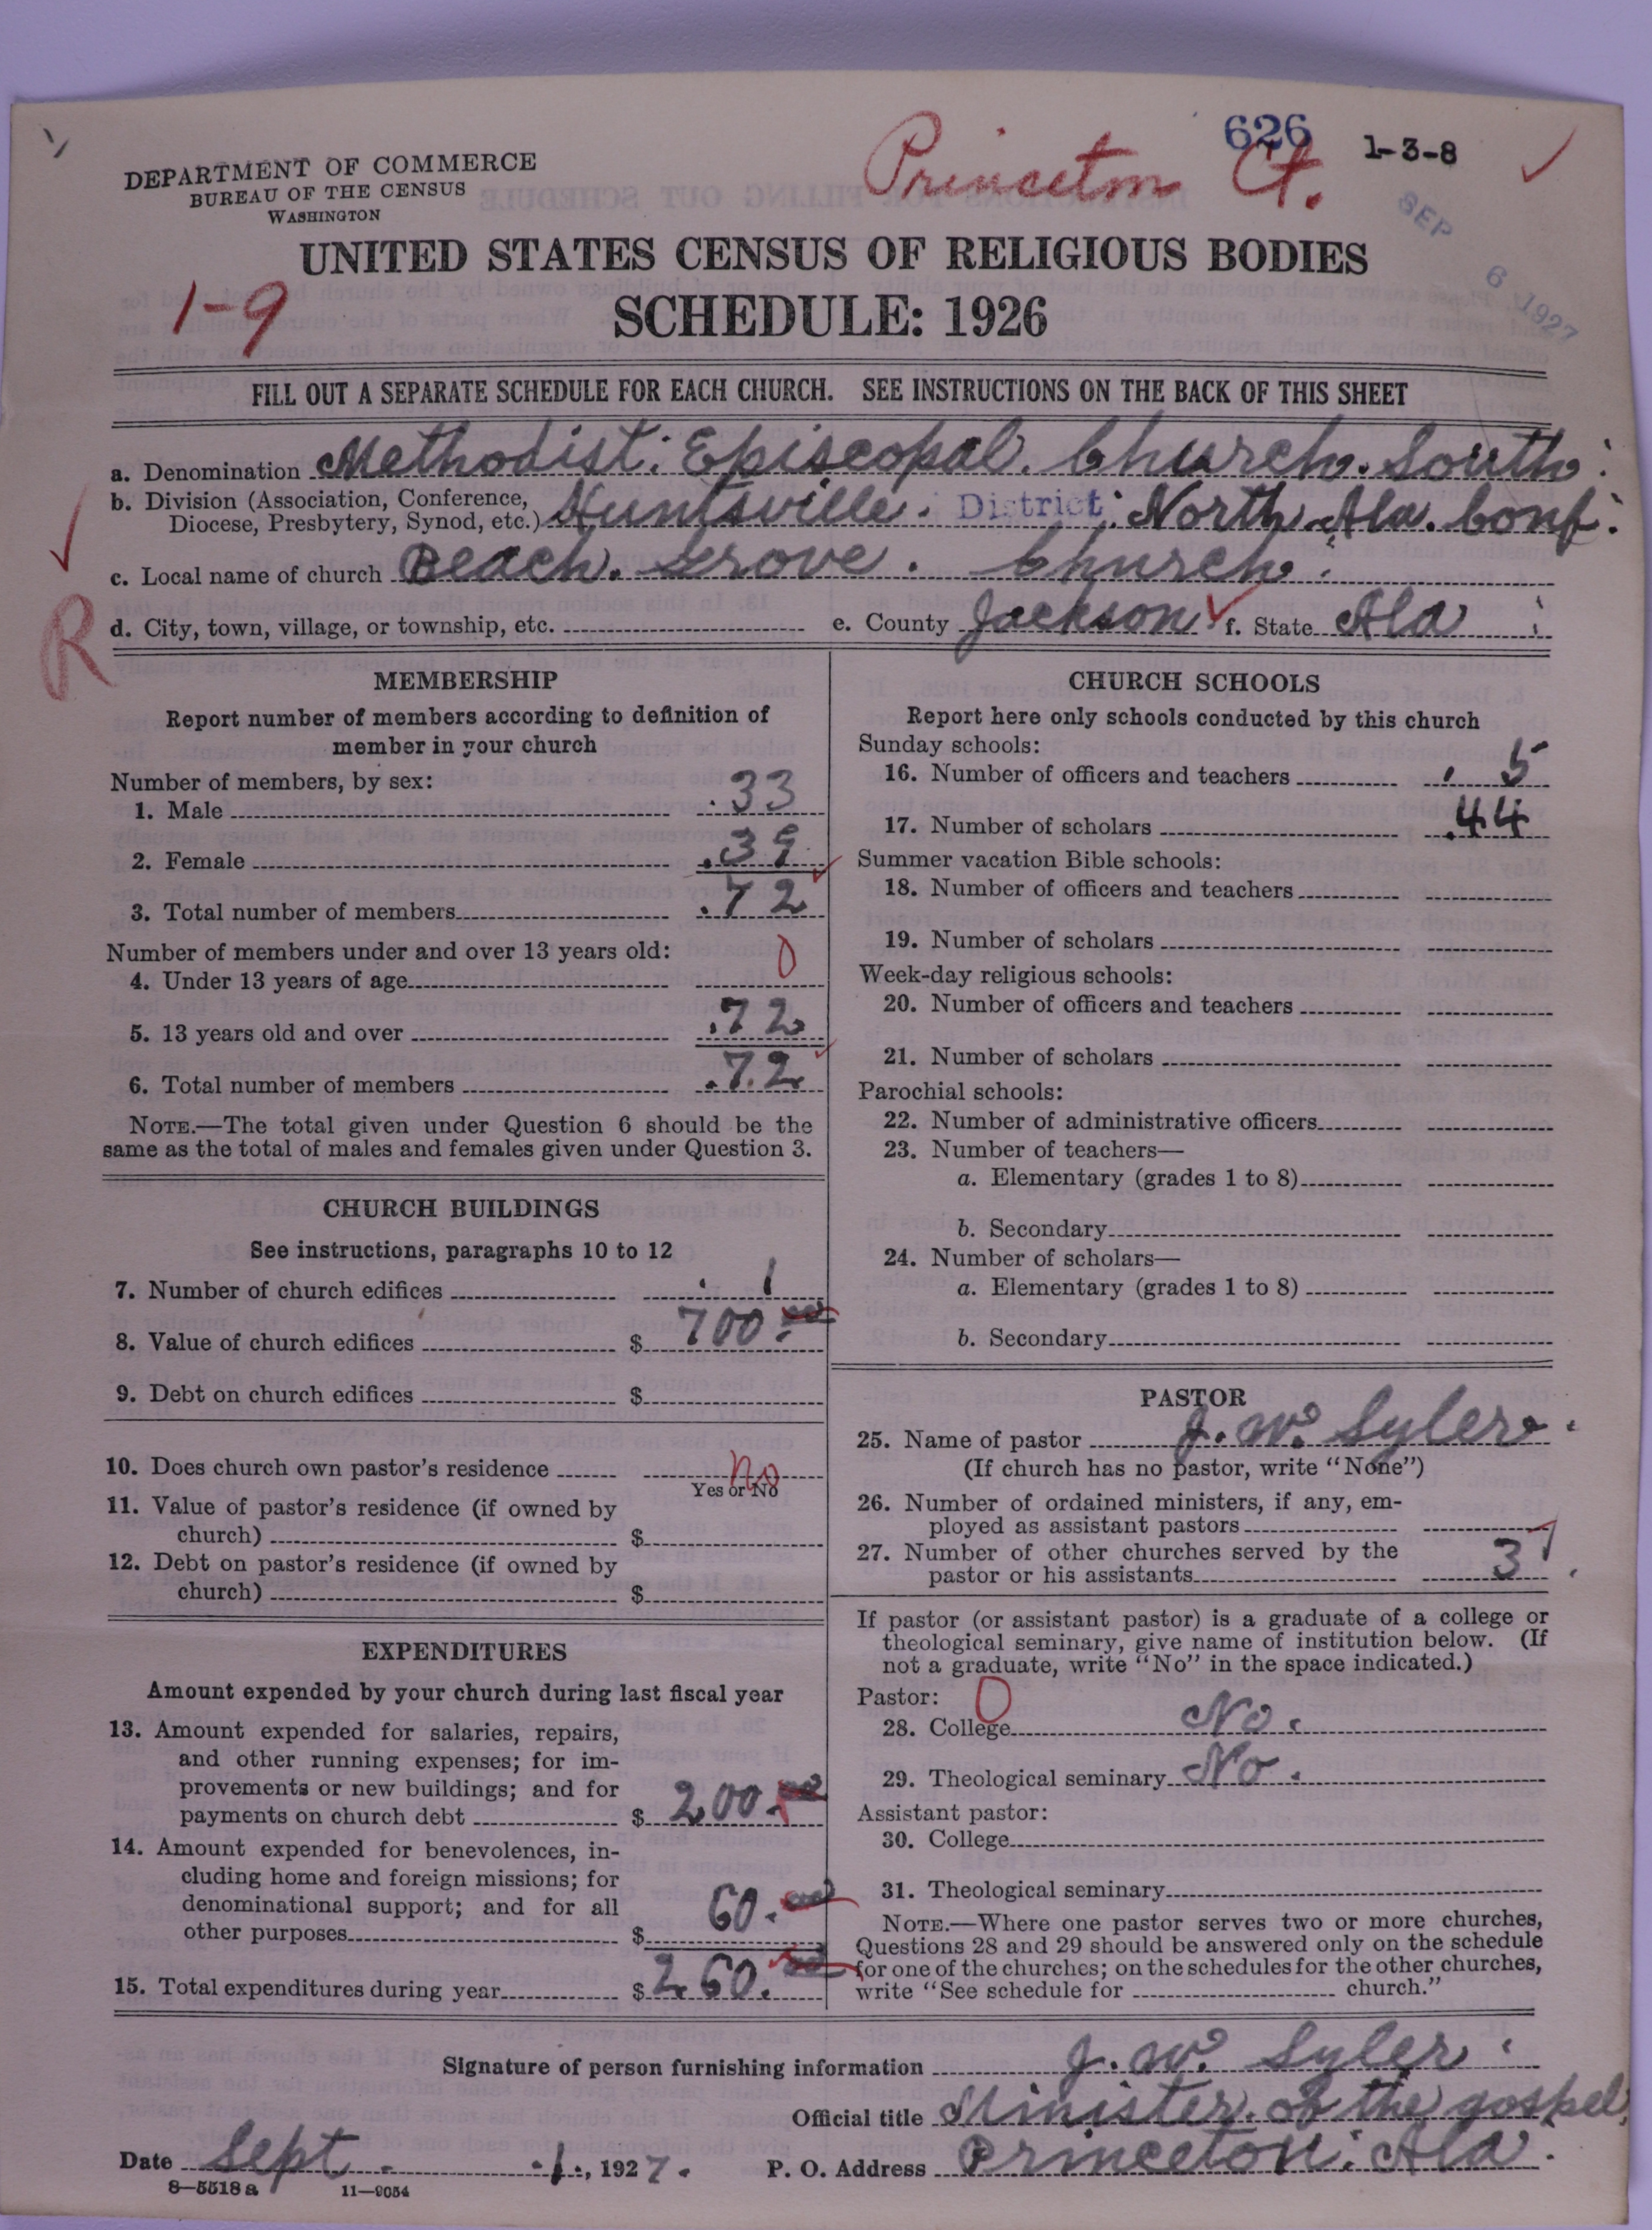 626 1-3-8
Princeton Ct.
SEP 6 1927
DEPARTMENT OF COMMERCE
BUREAU OF THE CENSUS
WASHINGTON
UNITED STATES CENSUS OF RELIGIOUS BODIES
1-9
SCHEDULE: 1926
FILL OUT A SEPARATE SCHEDULE FOR EACH CHURCH. SEE INSTRUCTIONS ON THE BACK OF THIS SHEET
a. Denomination Methodist. Episcopal. Church. South.
b. Division (Association, Conference,
Diocese, Presbytery, Synod, etc.) Huntsville. District. North. Ala. Conf.
c. Local name of church Beach. Grove. Church.
R
d. City, town, village, or township, etc. e. County Jackson f. State Ala
MEMBERSHIP
Report number of members according to definition of
member in your church
Number of members, by sex:
1. Male 33
2. Female 39
3. Total number of members 72
Number of members under and over 13 years old:
4. Under 13 years of age 0
5. 13 years old and over 72
6. Total number of members 72
NOTE.—The total given under Question 6 should be the
same as the total of males and females given under Question 3.
CHURCH BUILDINGS
See instructions, paragraphs 10 to 12
7. Number of church edifices 1
8. Value of church edifices $ 700.00
9. Debt on church edifices $
10. Does church own pastor's residence no
Yes or No
11. Value of pastor's residence (if owned by
church) $
12. Debt on pastor's residence (if owned by
church) $
EXPENDITURES
Amount expended by your church during last fiscal year
13. Amount expended for salaries, repairs,
and other running expenses; for im-
provements or new buildings; and for
payments on church debt $ 200.00
14. Amount expended for benevolences, in-
cluding home and foreign missions; for
denominational support; and for all
other purposes $ 60.00
15. Total expenditures during year $ 260.00
CHURCH SCHOOLS
Report here only schools conducted by this church
Sunday schools:
16. Number of officers and teachers 5
17. Number of scholars 44
Summer vacation Bible schools:
18. Number of officers and teachers
19. Number of scholars
Week-day religious schools:
20. Number of officers and teachers
21. Number of scholars
Parochial schools:
22. Number of administrative officers
23. Number of teachers—
a. Elementary (grades 1 to 8)
b. Secondary
24. Number of scholars—
a. Elementary (grades 1 to 8)
b. Secondary
PASTOR
25. Name of pastor J. W. Syler.
(If church has no pastor, write "None")
26. Number of ordained ministers, if any, em-
ployed as assistant pastors
27. Number of other churches served by the
pastor or his assistants 3
If pastor (or assistant pastor) is a graduate of a college or
theological seminary, give name of institution below. (If
not a graduate, write "No" in the space indicated.)
Pastor: 0
28. College No.
29. Theological seminary No.
Assistant pastor:
30. College
31. Theological seminary
NOTE.—Where one pastor serves two or more churches,
Questions 28 and 29 should be answered only on the schedule
for one of the churches; on the schedules for the other churches,
write "See schedule for church."
Signature of person furnishing information J. W. Syler.
Official title Minister. of the gospel
Date Sept. 1., 1927. P. O. Address Princeton. Ala.
8-5518a 11-9054